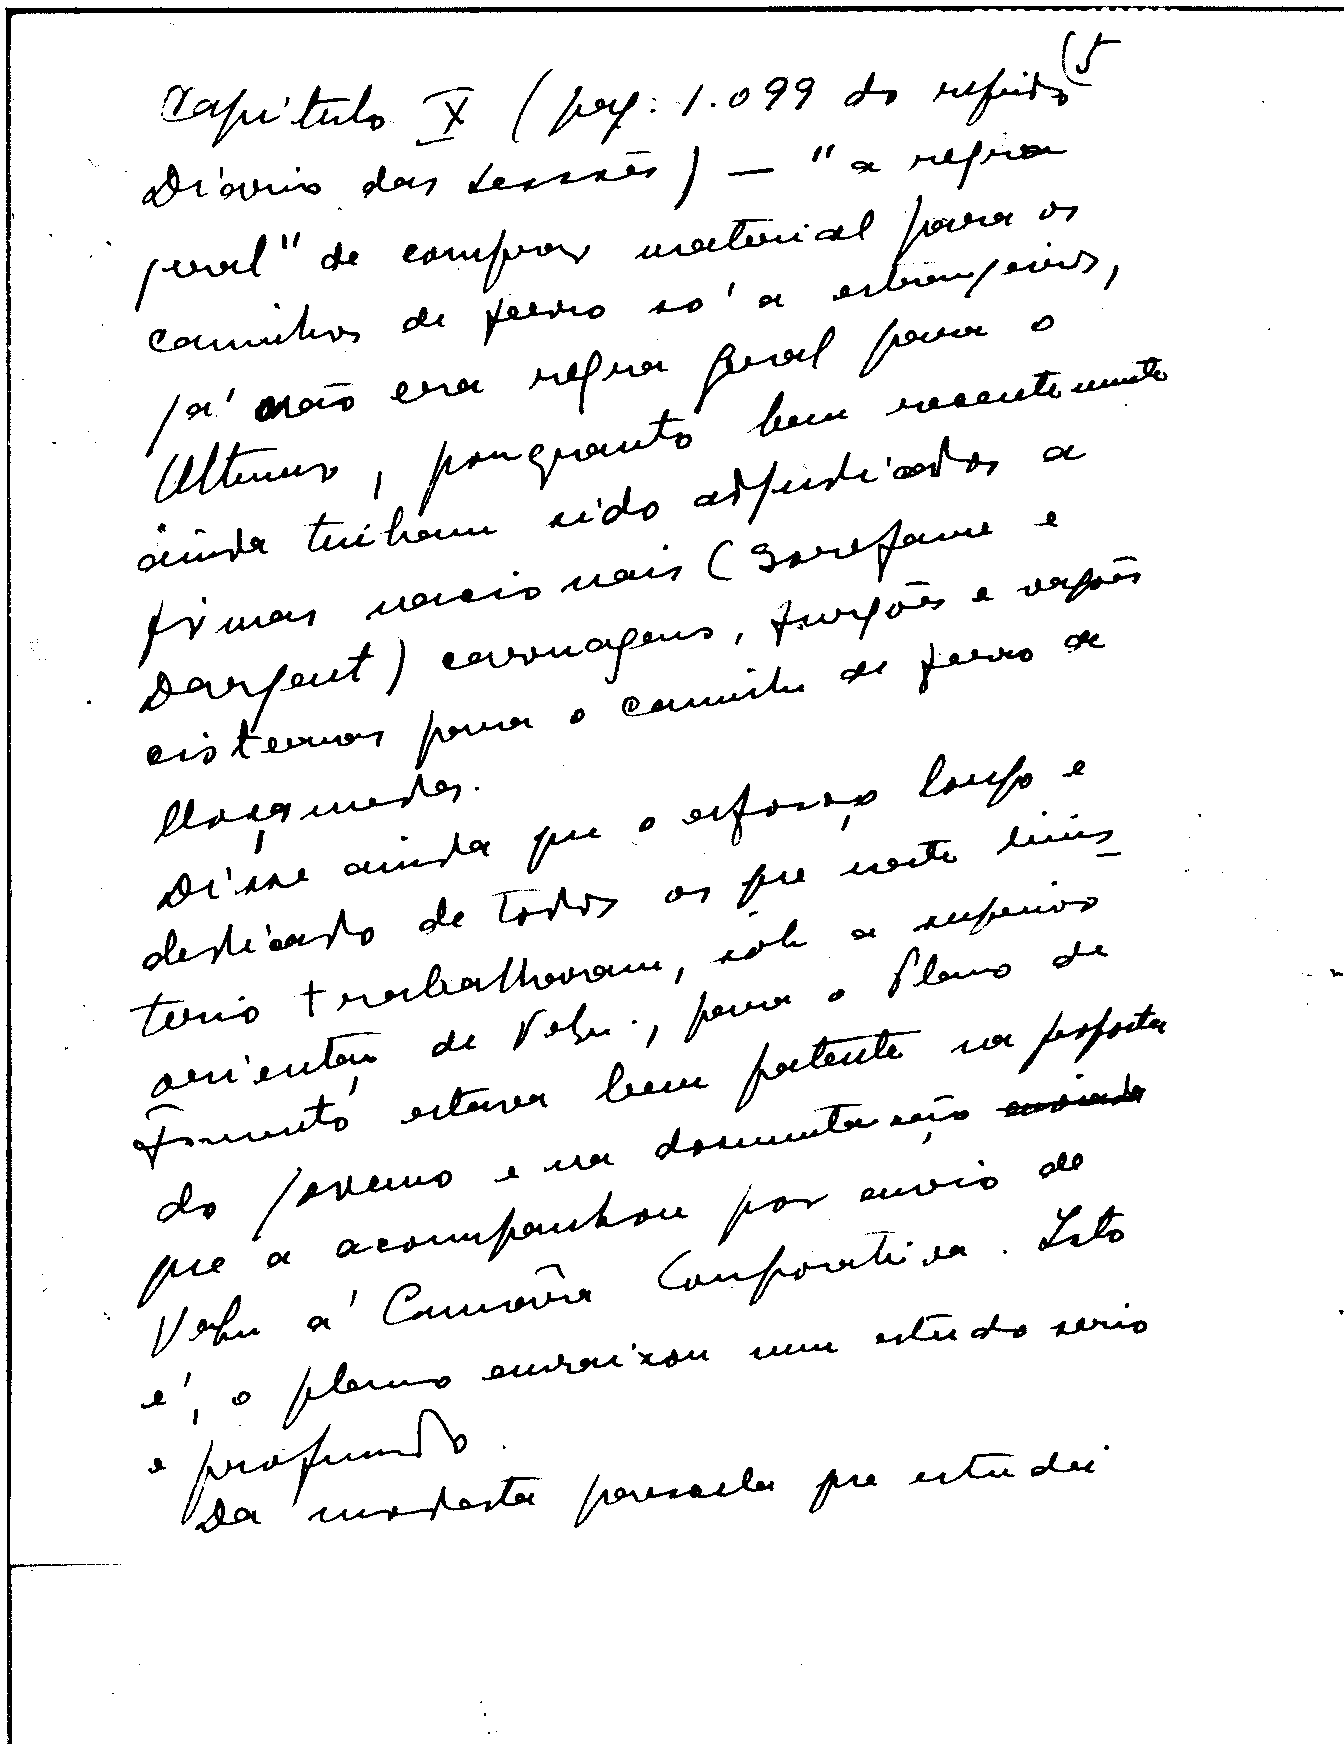 (5
Capitulo X (pag. 1.099 do referido
Diário das Sessões) — "a regra
geral" de comprar material para os
caminhos de ferro só a estrangeiros,
já não era regra geral para o
Ultramar, porquanto bem recentemente
ainda tinham sido adjudicados a
firmas nacionais (Sorefame e
Dargent) carruagens, furgões e vagões
cisternas para o caminho de ferro de
Moçamedes.
Disse ainda que o esforço longo e
dedicado de todos os que neste minis
terio trabalharam, sob a superior
orientação de V. Ex.ª, para o Plano de
Fomento estava bem patente na proposta
do Governo e na documentação
que a acompanhou por envio de
V. Ex.ª à Camara Corporativa. Isto
é, o plano enraizou num estudo serio
e profundo.
Da modesta parcela que estudei